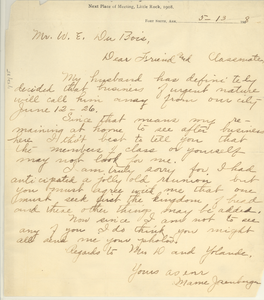 Next Place of Meeting, Little Rock, 1908.
Fort Smith, Ark. 5-13 8
Mr. W. E. Du Bois,
Dear Friend and Classmate,
My husband has definitely
decided that business of urgent nature
will call him away from our city
June 12-26.
Since that means my re-
maining at home to see after business
here I'd best to tell you that
the members of class or yourself
may not look for me.
I am truly sorry for I had
anticipated a jolly old reunion but
you must agree with me that one
must, seek first the kingdom of bud
and these other things may be added.
Now since I am not to see
any of you I do think you might
all send me your photos.
Regards to Mrs D and Yolande.
Yours as ever
Mame